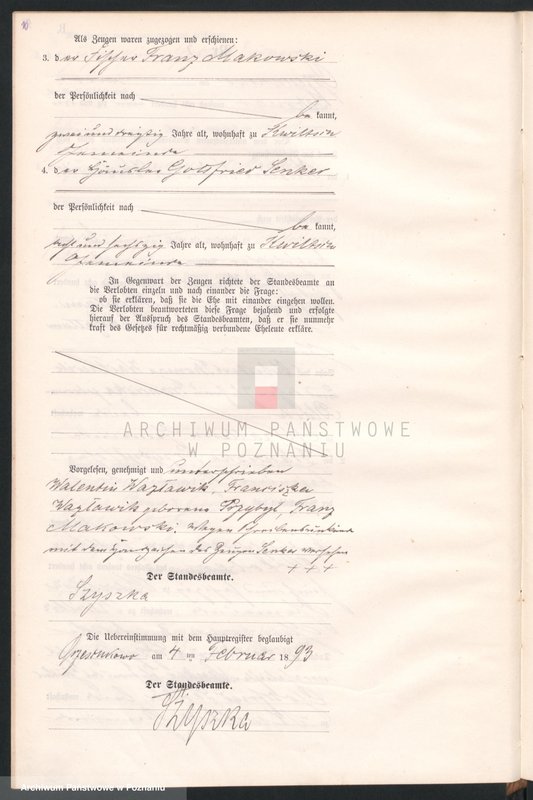 Als Zeugen waren zugezogen und erschienen:
3. der Fischer Franz Makowski
der Persönlichkeit nach
bekannt,
zweiunddreißig Jahre alt, wohnhaft zu Kwiltsch
Gemeinde
4. der Häusler Gottfried Senker
der Persönlichkeit nach
bekannt,
und sechszig Jahre alt, wohnhaft zu Kwiltsch
Gemeinde
In Gegenwart der Zeugen richtete der Standesbeamte an
die Verlobten einzeln und nach einander die Frage:
ob sie erklären, daß sie die Ehe mit einander eingehen wollen.
Die Verlobten beantworteten diese Frage bejahend und erfolgte
hierauf der Ausspruch des Standesbeamten, daß er sie nunmehr
kraft des Gesetzes für rechtmäßig verbundene Eheleute erkläre.
ARCHIWUM PAŃSTWOWE
W POZNANIU
Vorgelesen, genehmigt und unterschrieben
Walentin Wazławik, Franciszka
Wazławik geborene Przybył, Franz
Makowski. Wegen Schreibensunkunde
mit dem Handzeichen des Zeugen Senker versehen
+ + +
Der Standesbeamte.
Szyszka
Die Uebereinstimmung mit dem Hauptregister beglaubigt
am 4 ten Februar 1893
Der Standesbeamte.
Szyszka
Archiwum Państwowe w Poznaniu